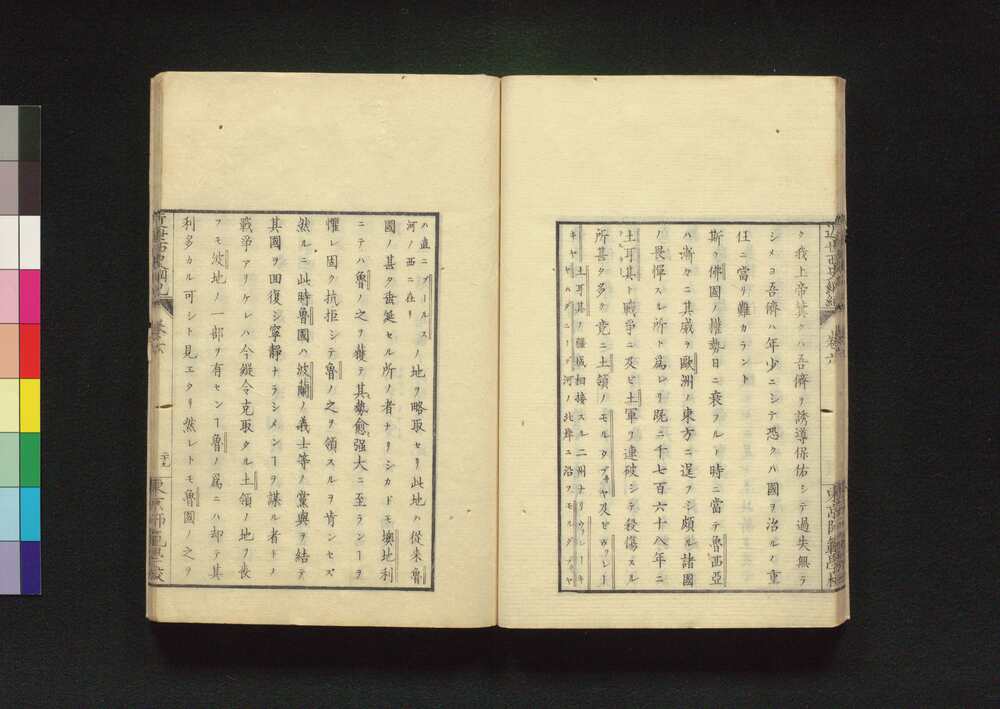 ク我上帝冀クハ吾儕ヲ誘導保佑シテ過失無ラ
シメヨ吾儕ハ年少ニシテ恐クハ國ヲ治ルノ重
任ニ當リ難カラント
斯ク佛國ノ權勢日ニ衰フルト時ニ當テ魯西亞
ハ漸々ニ其威ヲ歐洲ノ東方ニ逞フシ頗ル諸國
ノ畏憚スル所ト爲レリ既ニ千七百六十八年ニ
土耳其ト戰爭ニ及ビ土軍ヲ連破シテ殺傷スル
所甚タ多ク竟ニ土領ノモルダヴヤ及ビワ
土耳其ノ疆域相接スル二州ナリ
河ノ北岸ニ沿フモルダヴヤ
ハ直ニ
河ノ西ニ在リ
ノ地ヲ略取セリ此地ハ從來魯
國ノ甚タ垂涎セル所ノ者ナリシカドモ墺地利
ニテハ魯ノ之ヲ獲テ其勢愈强大ニ至ランヿヲ
懼レ固ク抗拒シテ魯ノ之ヲ領スルヲ肯ンセズ
然ルニ此時魯國ハ波蘭ノ義士等ノ黨與ヲ結テ
其國ヲ回復シ寧靜ナラシメンヿヲ謀ル者トノ
戰爭アリケレハ今縱令克取タル土領ノ地ヲ喪
フモ波地ノ一部ヲ有センヿ魯ノ爲ニハ却テ其
利多カル可シト見エタリ然レトモ魯國ノ之ヲ
卷六